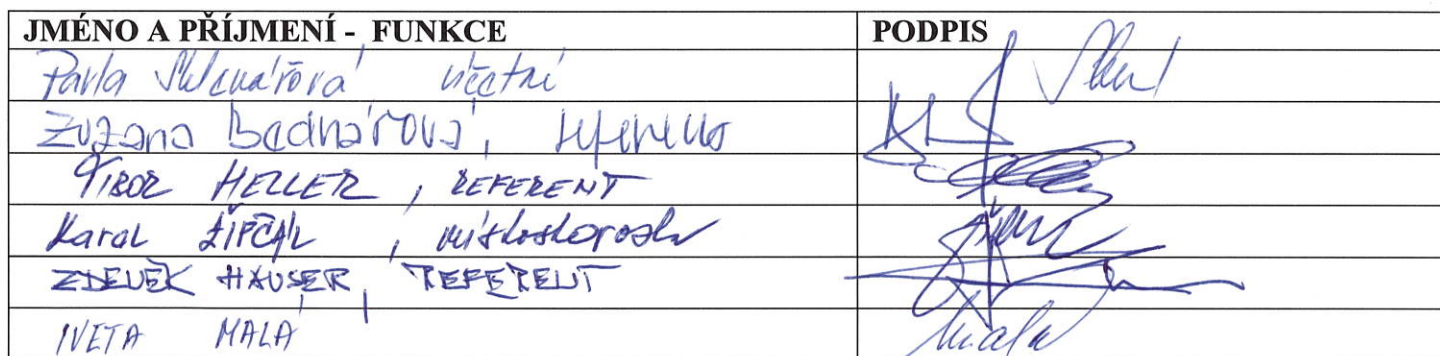 JMÉNO A PŘÍJMENÍ - FUNKCE PODPIS
Pavla Sklenářová účetní
Zuzana Bednářová, referentka
TIBOR HELLER, REFERENT
Karol ŽIPČÁK, místostarosta
ZDENĚK HAUSER, REFERENT
IVETA MALÁ Malá